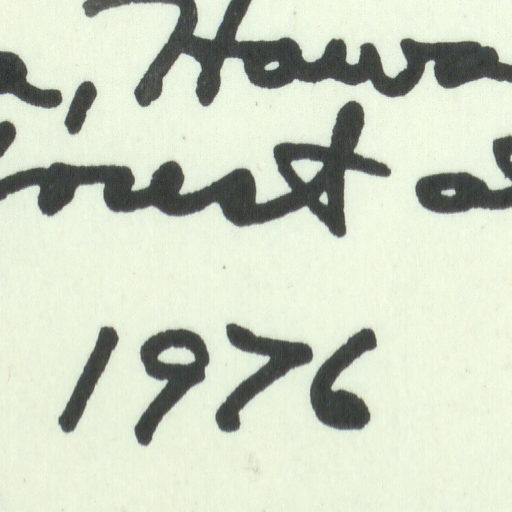 a, Hawa
forest
1976